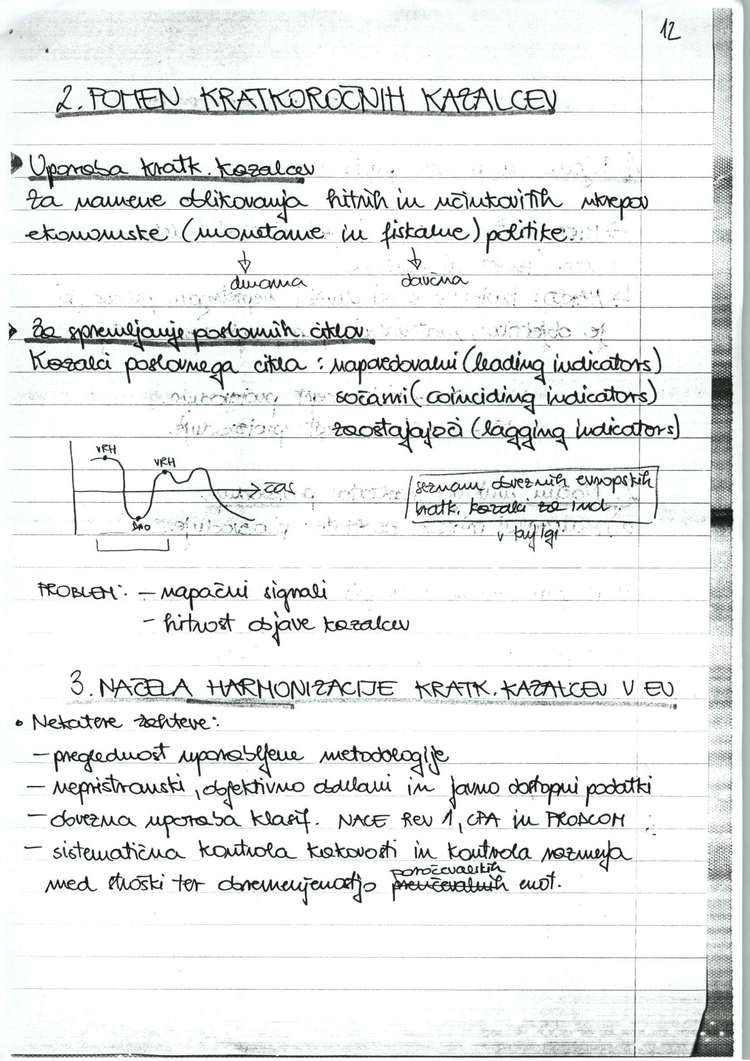 12
2. POMEN KRATKOROČNIH KAZALCEV
Uporaba kratk. kazalcev
za namene oblikovanja hitrih in učinkovitih ukrepov
ekonomske (monetarne in fiskalne) politike.
denarna davčna
za spremljanje poslovnih ciklov
Kazalci poslovnega cikla : napovedovalni (leading indicators)
sočasni (coinciding indicators)
zaostajajoči (lagging indicators)
VRH
VRH
čas
DNO
seznam obveznih evropskih
kratk. kazalci za ind.
v knjigi
PROBLEM: - napačni signali
- hitrost objave kazalcev
3. NAČELA HARMONIZACIJE KRATK. KAZALCEV V EU
• Nekatere zahteve:
- preglednost uporabljene metodologije
- nepristranski, objektivno oddani in javno dostopni podatki
- obvezna uporaba klasif. NACE Rev 1, CPA in PRODCOM
- sistematična kontrola kakovosti in kontrola razmerja
poročevalskih
med stroški ter obremenjenostjo enot.